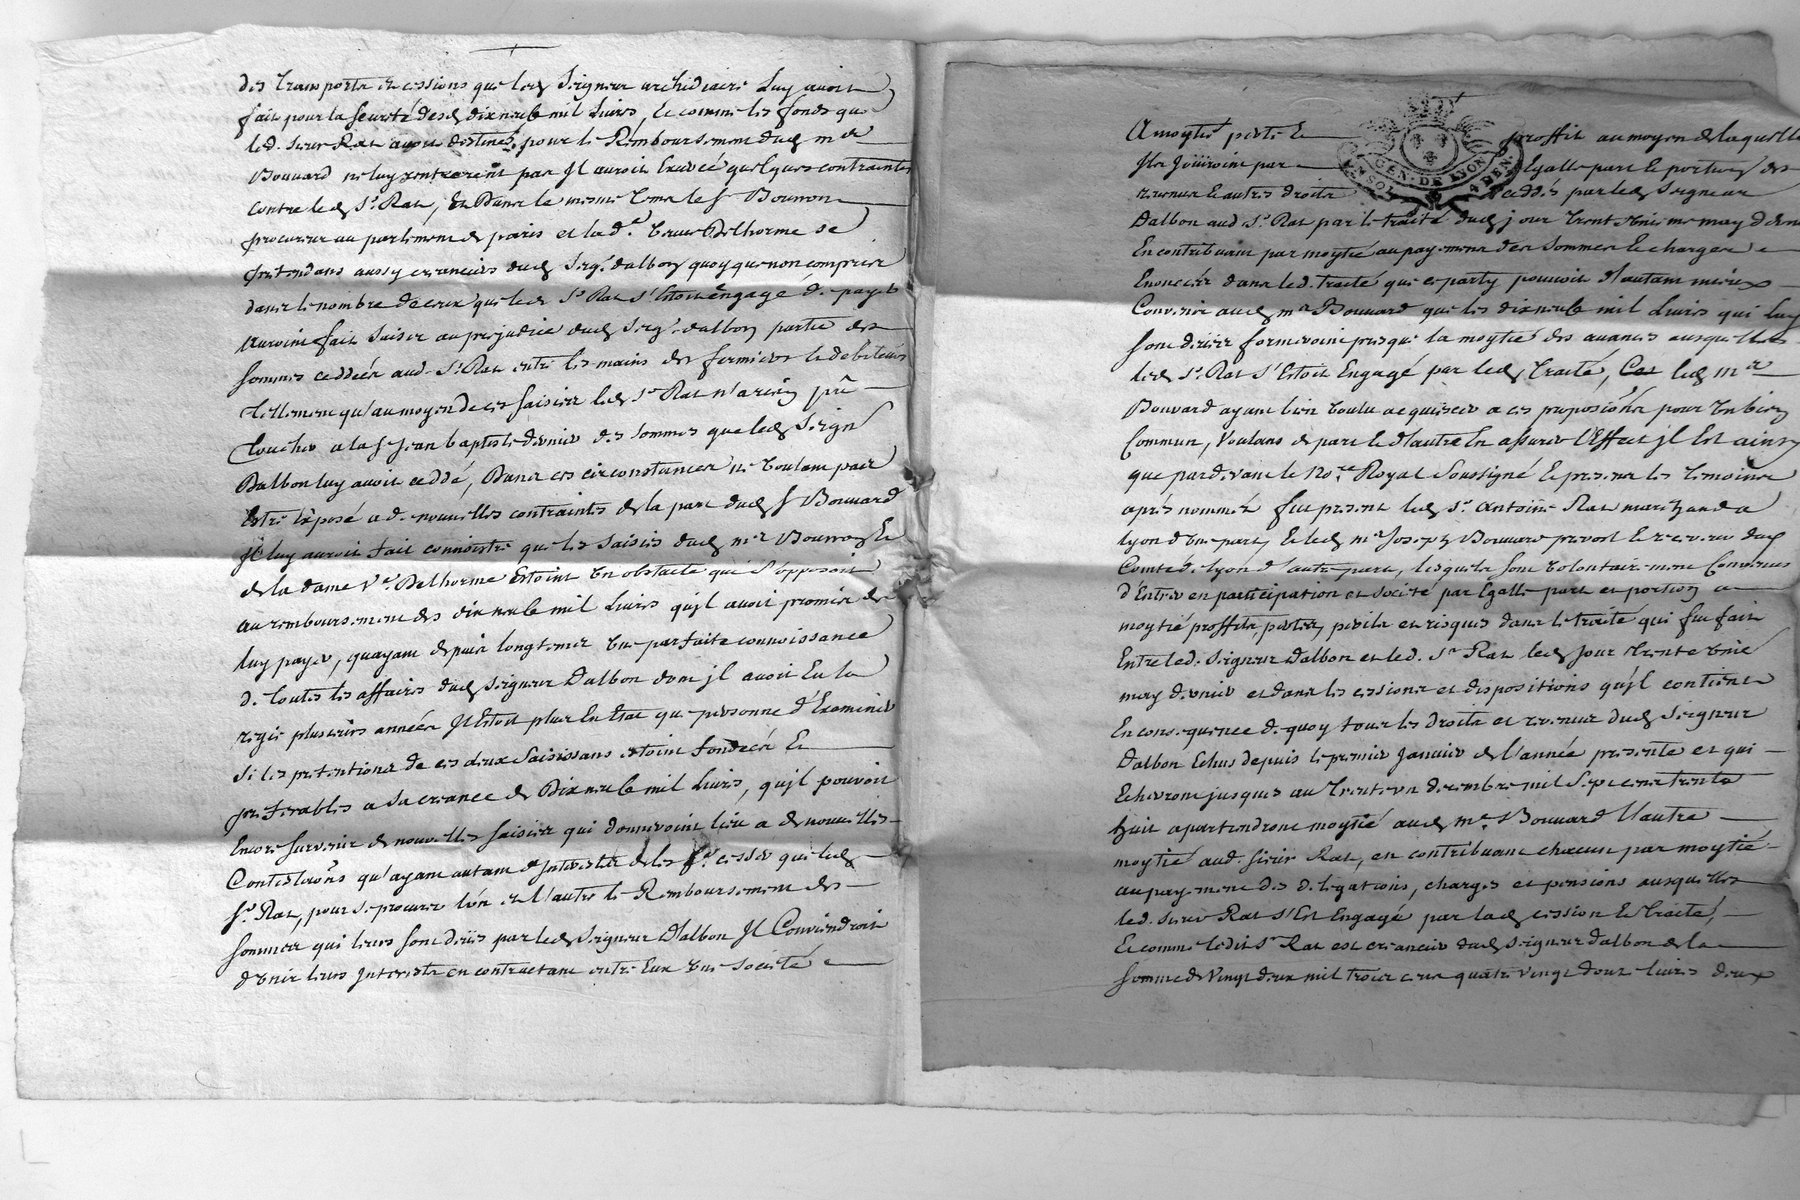 des transports et cessions que led. Seigneur archidiacre Luy avoit
fait pour la seureté desd. dix neuf mil Livres, Et comme les fonds que
led. sieur Rat avoit destinés pour le Remboursement dud. mr
Bouvard ne luy rentrerent pas Jl auroit Exercé quelques contraintes
contre led. Sr. Rat, Et Dans le mesme Tems le Sr Bourron
procureur au parlement de paris et la de. veuve Delhorme se
pretendans aussy creanciers dud. Seigr. dalbon quoyque non compris
dans le nombre de ceux que led. Sr. Rat s'Estoit engagé de payer
auroint fait saisir au prejudice dud. Seigr. dalbon partie des
sommes ceddées aud. Sr. Rat entre les mains des fermiers et debiteurs
Tellement qu'au moyen de ces saisies led. Sr Rat n'a rien pû
Toucher a la St Jean baptiste dernier des sommes que led. Seigr
Dalbon luy avoit ceddé, Dans ces circonstances ne voulant pas
Estre Exposé a de nouvelles contraintes de la part dud. Sr Bouvard
Jl luy auroit fait connoistre que les saisies dud. me Bourron Et
de la dame Ve. Delhorme Estoint Un obstacle qui s'opposoit
au remboursement des dix neuf mil Livres qu'jl avoit promis de
luy payer, quayant depuis longtems Une parfaite connoissance
de toutes les affaires dud. Seigneur Dalbon dont jl avoit Eu la
regie plusieurs années Jl Estoit plus En Etat que personne d'Examiner
si les pretentions de ces deux saisissans estoint fondées Et
preferables a sa creance de Dix neuf mil Livres, qu'jl pouvoit
Encore survenir de nouvelles saisies qui donneroint lieu a de nouvelles
Contestaons qu'ayant autant d'Interests de les fe. cesser que led.
Sr. Rat, pour se procurer l'un et l'autre le Remboursement des
sommes qui leurs sont deües par led. Seigneur Dalbon Jl Conviendroit
d'Unir leurs Interests en contractant entre Eux Une societé
A moytié perte Et proffit au moyen de laquelle
Jls Joüiroint par Egalle part et portion des
revenus Et autres droits ceddés par led. Seigneur
Dalbon aud. Sr. Rat par le traité dud. jour trent Unieme may dernier
En contribuant par moytié au payement des sommes Et charges
Enoncées dans led. traité que ce party pouvoit d'autant mieux
Convenir aud. me Bouvard que les dix neuf mil Livres qui luy
sont deües formeroint presque la moytié des avances ausquelles
led. Sr. Rat s'Estoit Engagé par led. Traité, Ces led. Mr
Bouvard ayant bien voulu acquiescer a ces proposions pour Un bien
Commun, Voulans de part Et d'autre En assurer l'Effect jl Est ainsy
que pardevant le Nore. Royal soussigné Et presens les temoins
aprés nommés fut present led. Sr. Antoine Rat marchand a
lyon d'Une part, Et led. me Joseph Bouvard prevost Et receveur dud.
Comté de lyon d'autre part, lesquels sont Volontairement Convenus
d'Entrer en participation et societé par Egalle part et portion a
moytié proffits, pertes, perils et risques dans le traité qui fut fait
Entre led. Seigneur Dalbon et led. Sr Rat led. Jour trente Unie
may dernier et dans les cessions et dispositions qu'jl contient
En consequence de quoy tous les droits et revenus dud. Seigneur
Dalbon Echus depuis le premier Janvier de l'année presente et qui
Echerront jusques au Trente un decembre mil sept cens trente
huit apartiendront moytié aud. me. Bouvard l'autre
moytié aud. sieur Rat, en contribuant chacun par moytié
au payement des delegations, charges et pensions ausquelles
led. sieur Rat s'Est Engagé par lad. cession Et Traité,
Et comme ledit Sr Rat est creancier dud. Seigneur dalbon de la
somme de Vingt deux mil trois cens quatre vingt douze livres deux
GEN. DE LYON